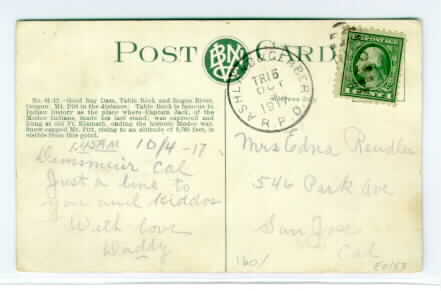 POST CARD
BNC
No. 41-12.—Gold Ray Dam, Table Rock and Rogue River,
Oregon. Mt. Pitt in the distance. Table Rock is famous in
Indian history as the place where Captain Jack, of the
Modoc Indians, made his last stand; was captured and
hung at old Ft. Klamath, ending the historic Modoc war.
Snow capped Mt. Pitt, rising to an altitude of 9,760 feet, is
visible from this point.
ASHLAND & GERBER
TR 15
OCT
191
R.P.O.
1 CENT 1
1:45AM 10/4-17
Dunsmuir Cal
Just a line to
you and kiddos
With love
Daddy
Mrs Edna Rendler
546 Park Ave
San Jose
Cal
1601
E0153